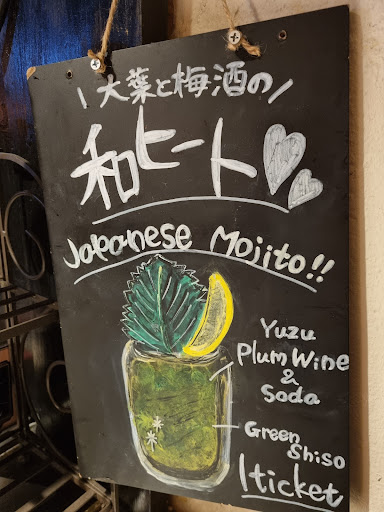 \大葉と梅酒の/
和ヒート
Japanese Mojito!!
Yuzu
Plum Wine
&
Soda
Green
Shiso
1ticket